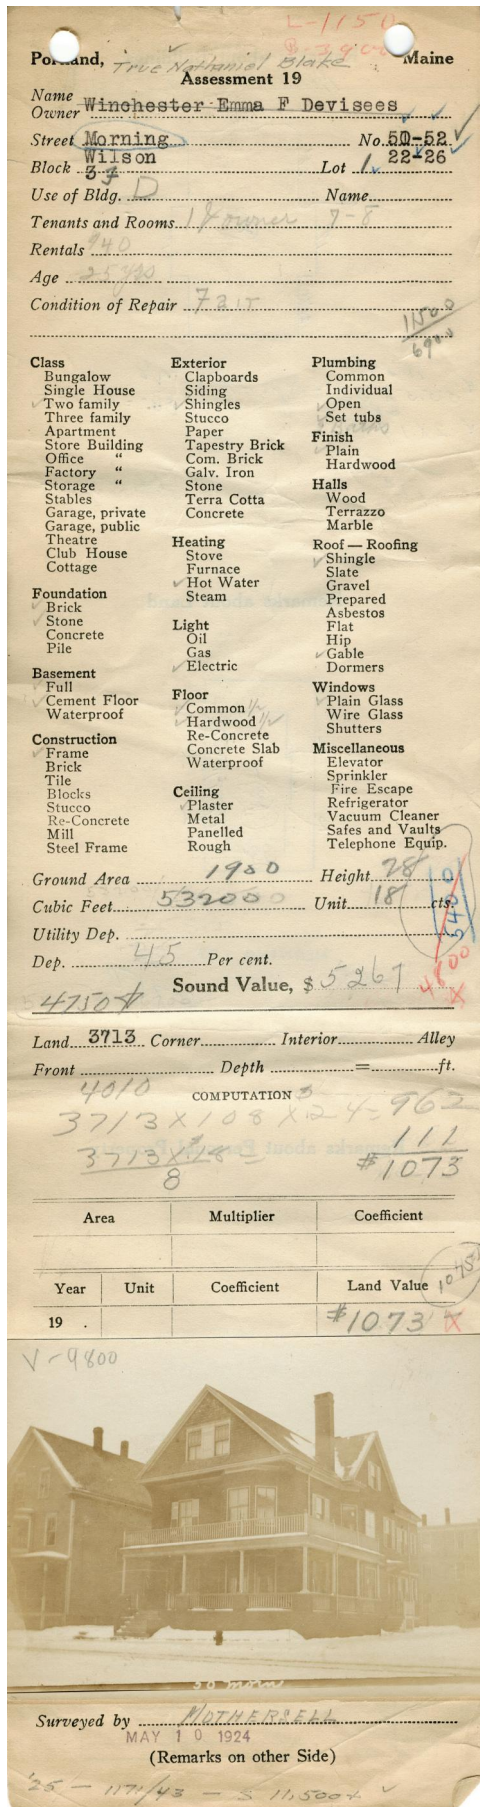 L-1150
B-3900
Portland, True Nathaniel Blake Maine
Assessment 19
Name
Owner Winchester Emma F Devisees
Street Morning No. 50-52
Wilson 22-26
Block 3 Lot 1
Use of Bldg. D Name
Tenants and Rooms 1 & owner 7-8
Rentals $40
Age 25 yrs
Condition of Repair Fair
11500
6900
Class
Bungalow
Single House
✓ Two family
Three family
Apartment
Store Building
Office "
Factory "
Storage "
Stables
Garage, private
Garage, public
Theatre
Club House
Cottage
Foundation
✓ Brick
✓ Stone
Concrete
Pile
Basement
✓ Full
✓ Cement Floor
Waterproof
Construction
✓ Frame
Brick
Tile
Blocks
Stucco
Re-Concrete
Mill
Steel Frame
Exterior
Clapboards
Siding
✓ Shingles
Stucco
Paper
Tapestry Brick
Com. Brick
Galv. Iron
Stone
Terra Cotta
Concrete
Heating
Stove
Furnace
✓ Hot Water
Steam
Light
Oil
Gas
✓ Electric
Floor
✓ Common 1/2
✓ Hardwood 1/2 ✓
Re-Concrete
Concrete Slab
Waterproof
Ceiling
✓ Plaster
Metal
Panelled
Rough
Plumbing
Common
Individual
✓ Open
✓ Set tubs
Finish
✓ Plain
Hardwood
Halls
Wood
Terrazzo
Marble
Roof — Roofing
✓ Shingle
Slate
Gravel
Prepared
Asbestos
Flat
Hip
✓ Gable
Dormers
Windows
✓ Plain Glass
Wire Glass
Shutters
Miscellaneous
Elevator
Sprinkler
Fire Escape
Refrigerator
Vacuum Cleaner
Safes and Vaults
Telephone Equip.
Ground Area 1900 Height 28
Cubic Feet 53200 Unit 18 cts.
5400
Utility Dep.
Dep. 45 Per cent.
4800
Sound Value, $ 5267
4750
Land 3713 Corner Interior Alley
Front Depth = ft.
4010
COMPUTATION
3713 X 108 X 24 = 962
3713 X 18 = 111
8 $1073
Area Multiplier Coefficient
Year Unit Coefficient Land Value
1075
19 . $1073
V-9800
50 morn
Surveyed by MOTHERSELL
MAY 10 1924
(Remarks on other Side)
'25 - 1171/43 - $ 11,500